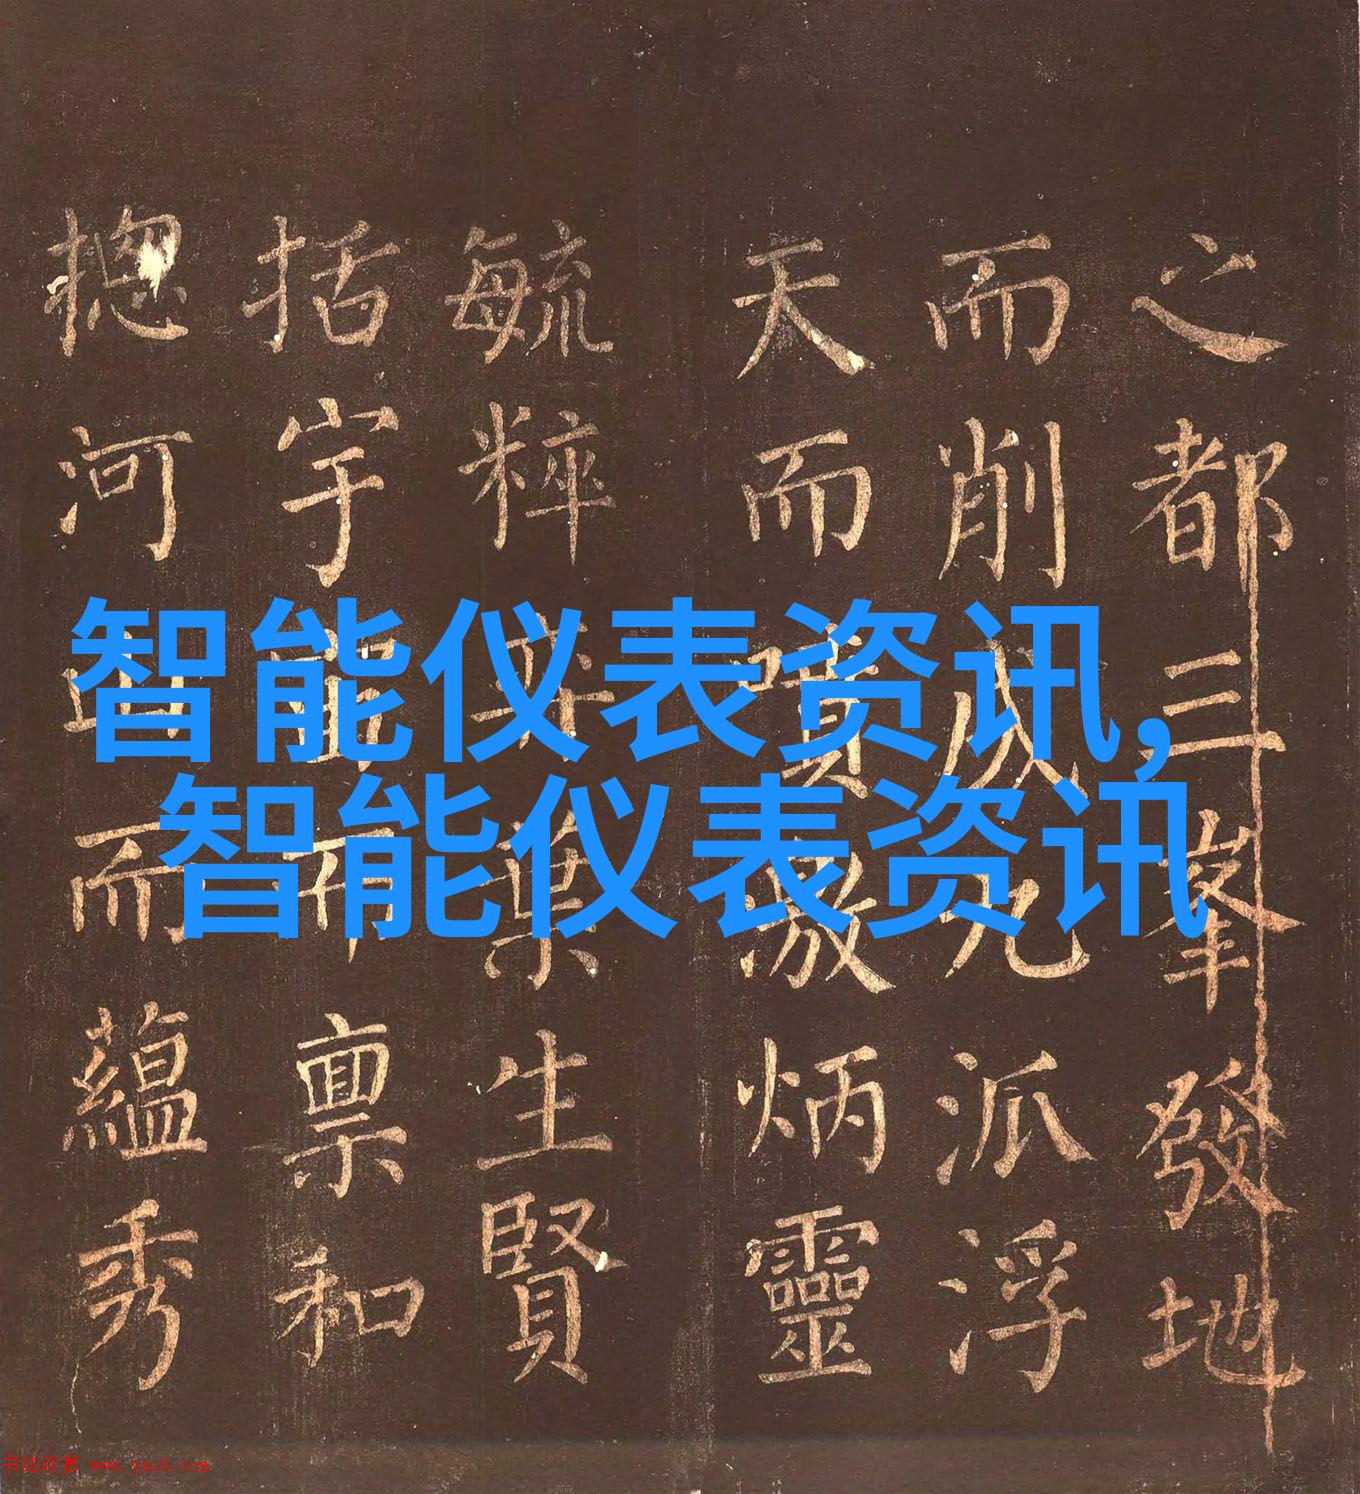 之都三峯發地
而削成九派浮
天而噴激炳靈
毓粹弈葉生賢
括宇宙而禀和
揔河山而蘊秀
智能仪表资讯,
智能仪表资讯
书法欣赏 www.yac8.com